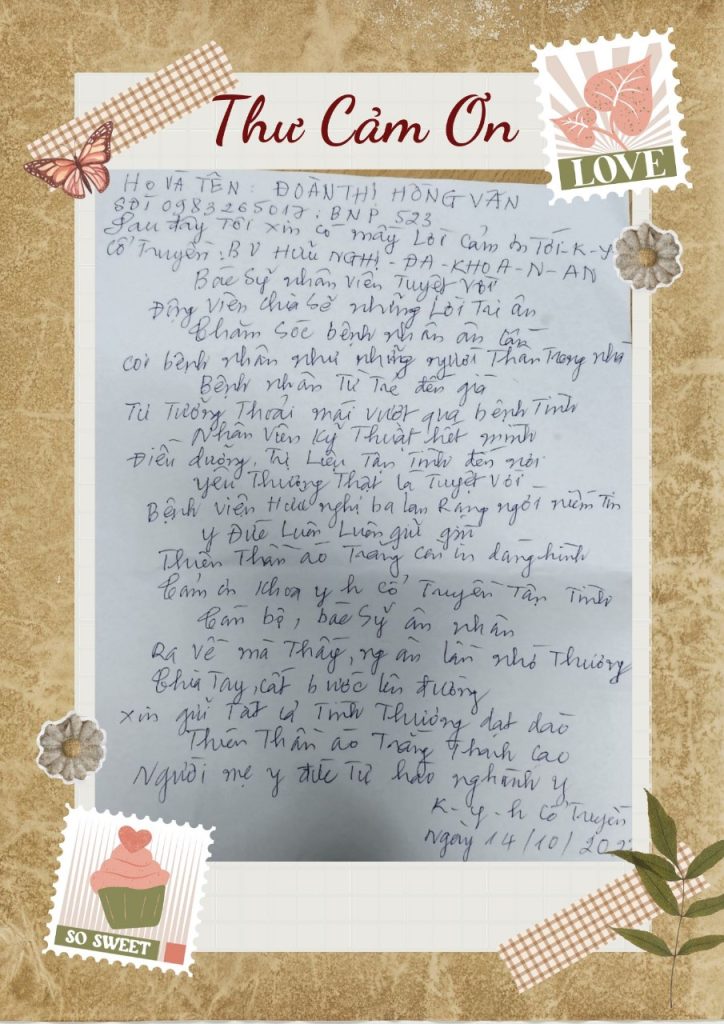 Thư Cảm Ơn
LOVE
HỌ VÀ TÊN: ĐOÀN THỊ HỒNG VÂN
SĐT 0983265017: BNP 523
Sau đây Tôi xin có mấy Lời Cảm ơn Tới-K-Y
Cổ Truyền: BV HỮU NGHỊ-ĐA-KHOA-N-AN
Bác Sỹ nhân viên Tuyệt vời
Động viên chia Sẻ những Lời Tri ân
Chăm Sóc bệnh nhân ân cần
Coi bệnh nhân như những người Thân Trong nhà
Bệnh nhân Từ Trẻ đến già
Tư Tưởng Thoải mái vượt qua bệnh Tình
Nhân Viên Kỹ Thuật hết mình
Điều dưỡng, Trị Liệu Tận Tình đến nơi
yêu Thương Thật là Tuyệt Vời
Bệnh Viện Hữu nghị ba lan Rạng ngời niềm Tin
y Đức Luôn Luôn giữ gìn
Thiên Thần áo Trắng còn in dáng hình
Cảm ơn Khoa y h cổ Truyền Tận Tình
Cán bộ, bác Sỹ ân nhân
Ra về mà Thấy, ng ân lần nhớ Thương
Chia Tay, cất bước lên đường
xin gửi Tất cả Tình Thương dạt dào
Thiên Thần áo Trắng Thanh Cao
Người mẹ y đức Tự hào nghành y
K-y-h Cổ Truyền
Ngày 14/10/
SO SWEET